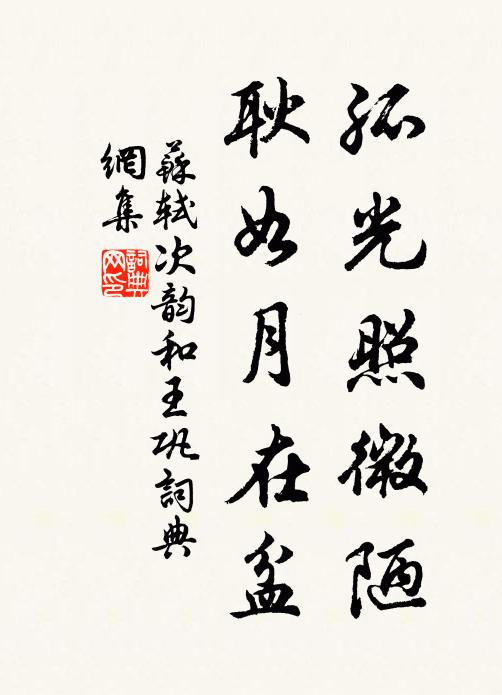 孤光照微陋
耿如月在盆
蘇軾次韵和王巩詞典
網集
詞典網印